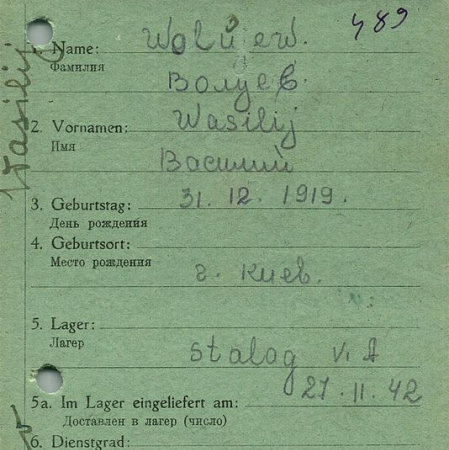 489
1. Name: Wolujew.
Фамилия
Волуев.
2. Vornamen: Wasilij
Имя
Василий
3. Geburtstag: 31. 12. 1919.
День рождения
4. Geburtsort:
Место рождения
г. Киев.
5. Lager:
Лагер
Stalag VI A
27. 11. 42
5a. Im Lager eingeliefert am:
Доставлен в лагер (число)
6. Dienstgrad:
Wasilij